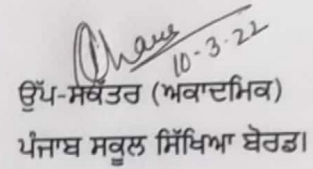 10-3-22
ਉੱਪ-ਸਕੱਤਰ (ਅਕਾਦਮਿਕ)
ਪੰਜਾਬ ਸਕੂਲ ਸਿੱਖਿਆ ਬੋਰਡ।